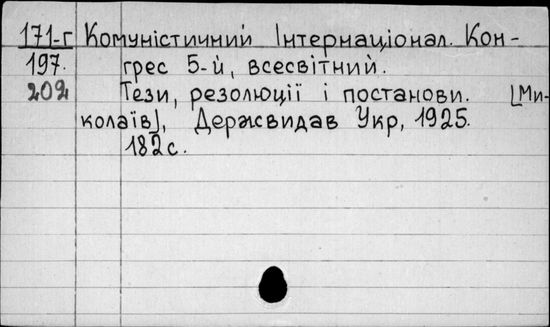 171-г Комуністичний Інтернаціонал. Кон-
197. грес 5-й, всесвітний.
202 Тези, резолюції і постанови. [Ми-
колаїв], Держвидав Укр, 1925.
182с.